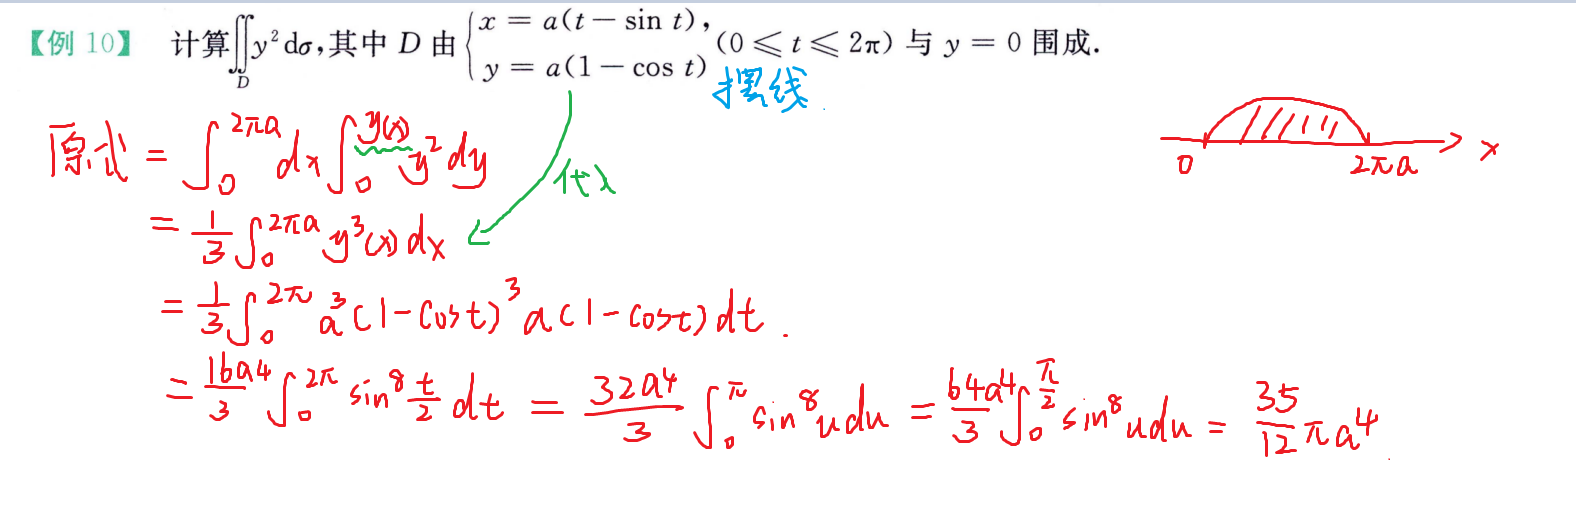 【例 10】 计算∬_D y² dσ,其中 D 由 { x = a(t − sin t), y = a(1 − cos t) (0 ⩽ t ⩽ 2π) 与 y = 0 围成.
摆线.
原式 = ∫₀^{2πa} dx ∫₀^{y(x)} y² dy
代入
= 1/3 ∫₀^{2πa} y³(x) dx
= 1/3 ∫₀^{2π} a³(1-cost)³ a(1-cost) dt.
= 16a⁴/3 ∫₀^{2π} sin⁸ t/2 dt = 32a⁴/3 ∫₀^{π} sin⁸u du = 64a⁴/3 ∫₀^{π/2} sin⁸u du = 35/12 πa⁴
0 2πa x